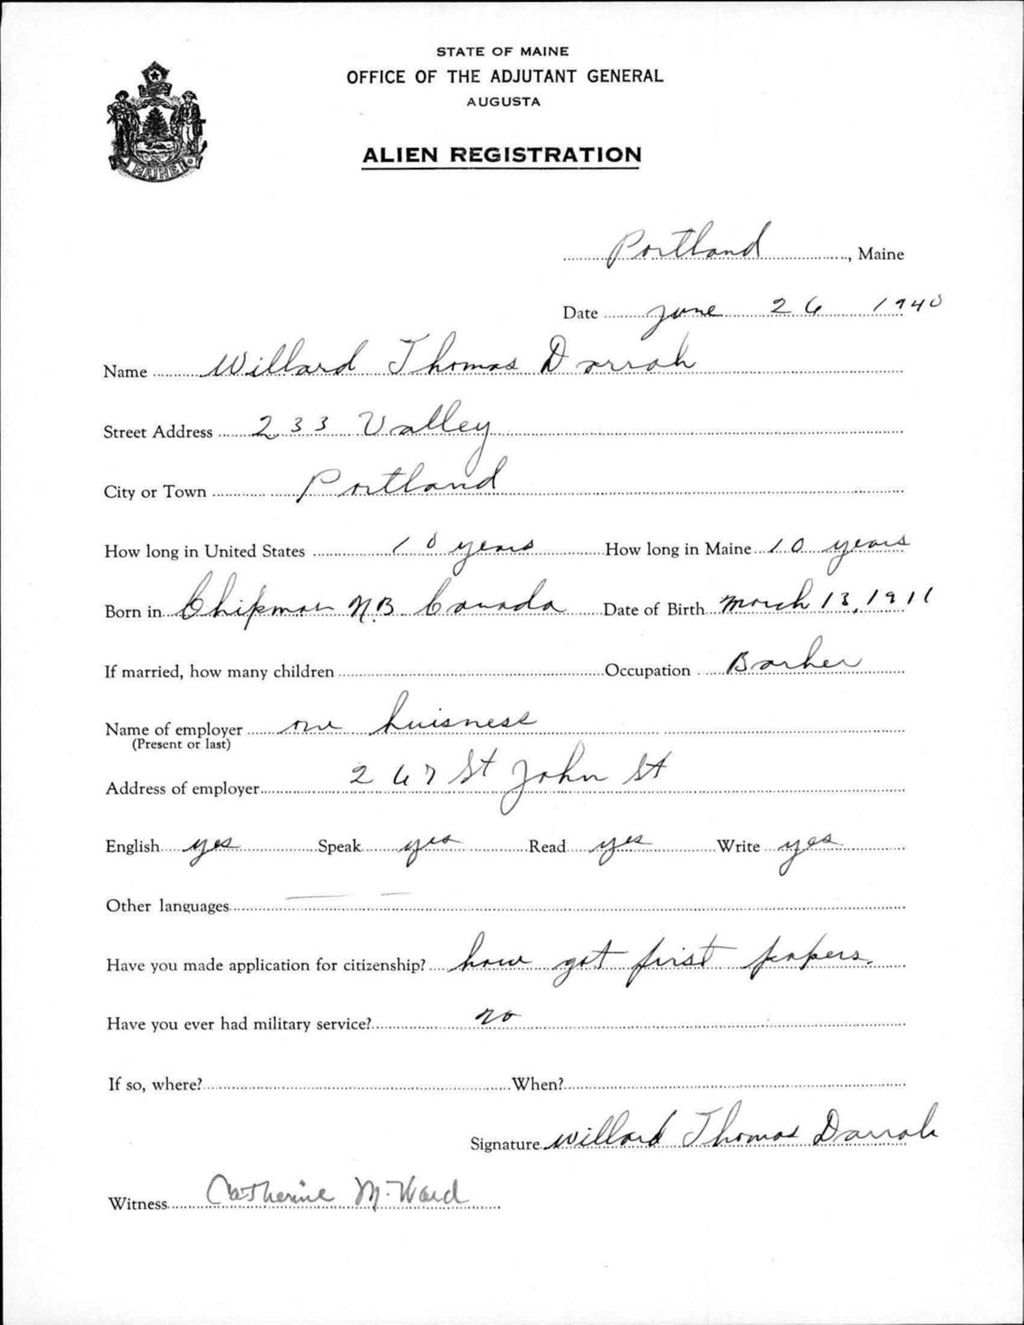 STATE OF MAINE
OFFICE OF THE ADJUTANT GENERAL
AUGUSTA
ALIEN REGISTRATION
MAINE
Portland, Maine
Date June 26 1940
Name Willard Thomas Darrah
Street Address 233 Valley
City or Town Portland
How long in United States 10 years How long in Maine 10 years
Born in Chipman N.B. Canada Date of Birth March 13, 1911
If married, how many children Occupation Barber
Name of employer own buisness
(Present or last)
Address of employer 267 St John St
English yes Speak yes Read yes Write yes
Other languages
Have you made application for citizenship? have got first papers.
Have you ever had military service? no
If so, where? When?
Signature Willard Thomas Darrah
Witness Catherine M. Ward